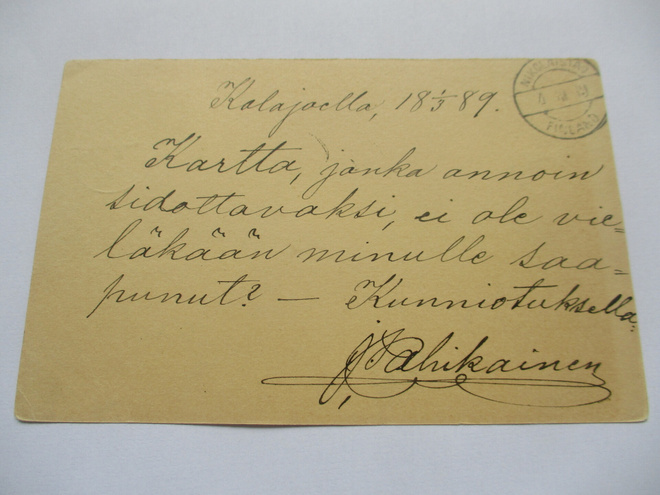 Kalajoella, 18 1/3 89.
Kartta, jonka annoin
sidottavaksi, ei ole vie=
läkään minulle saa=
punut? — Kunniotuksella:
FINLAND